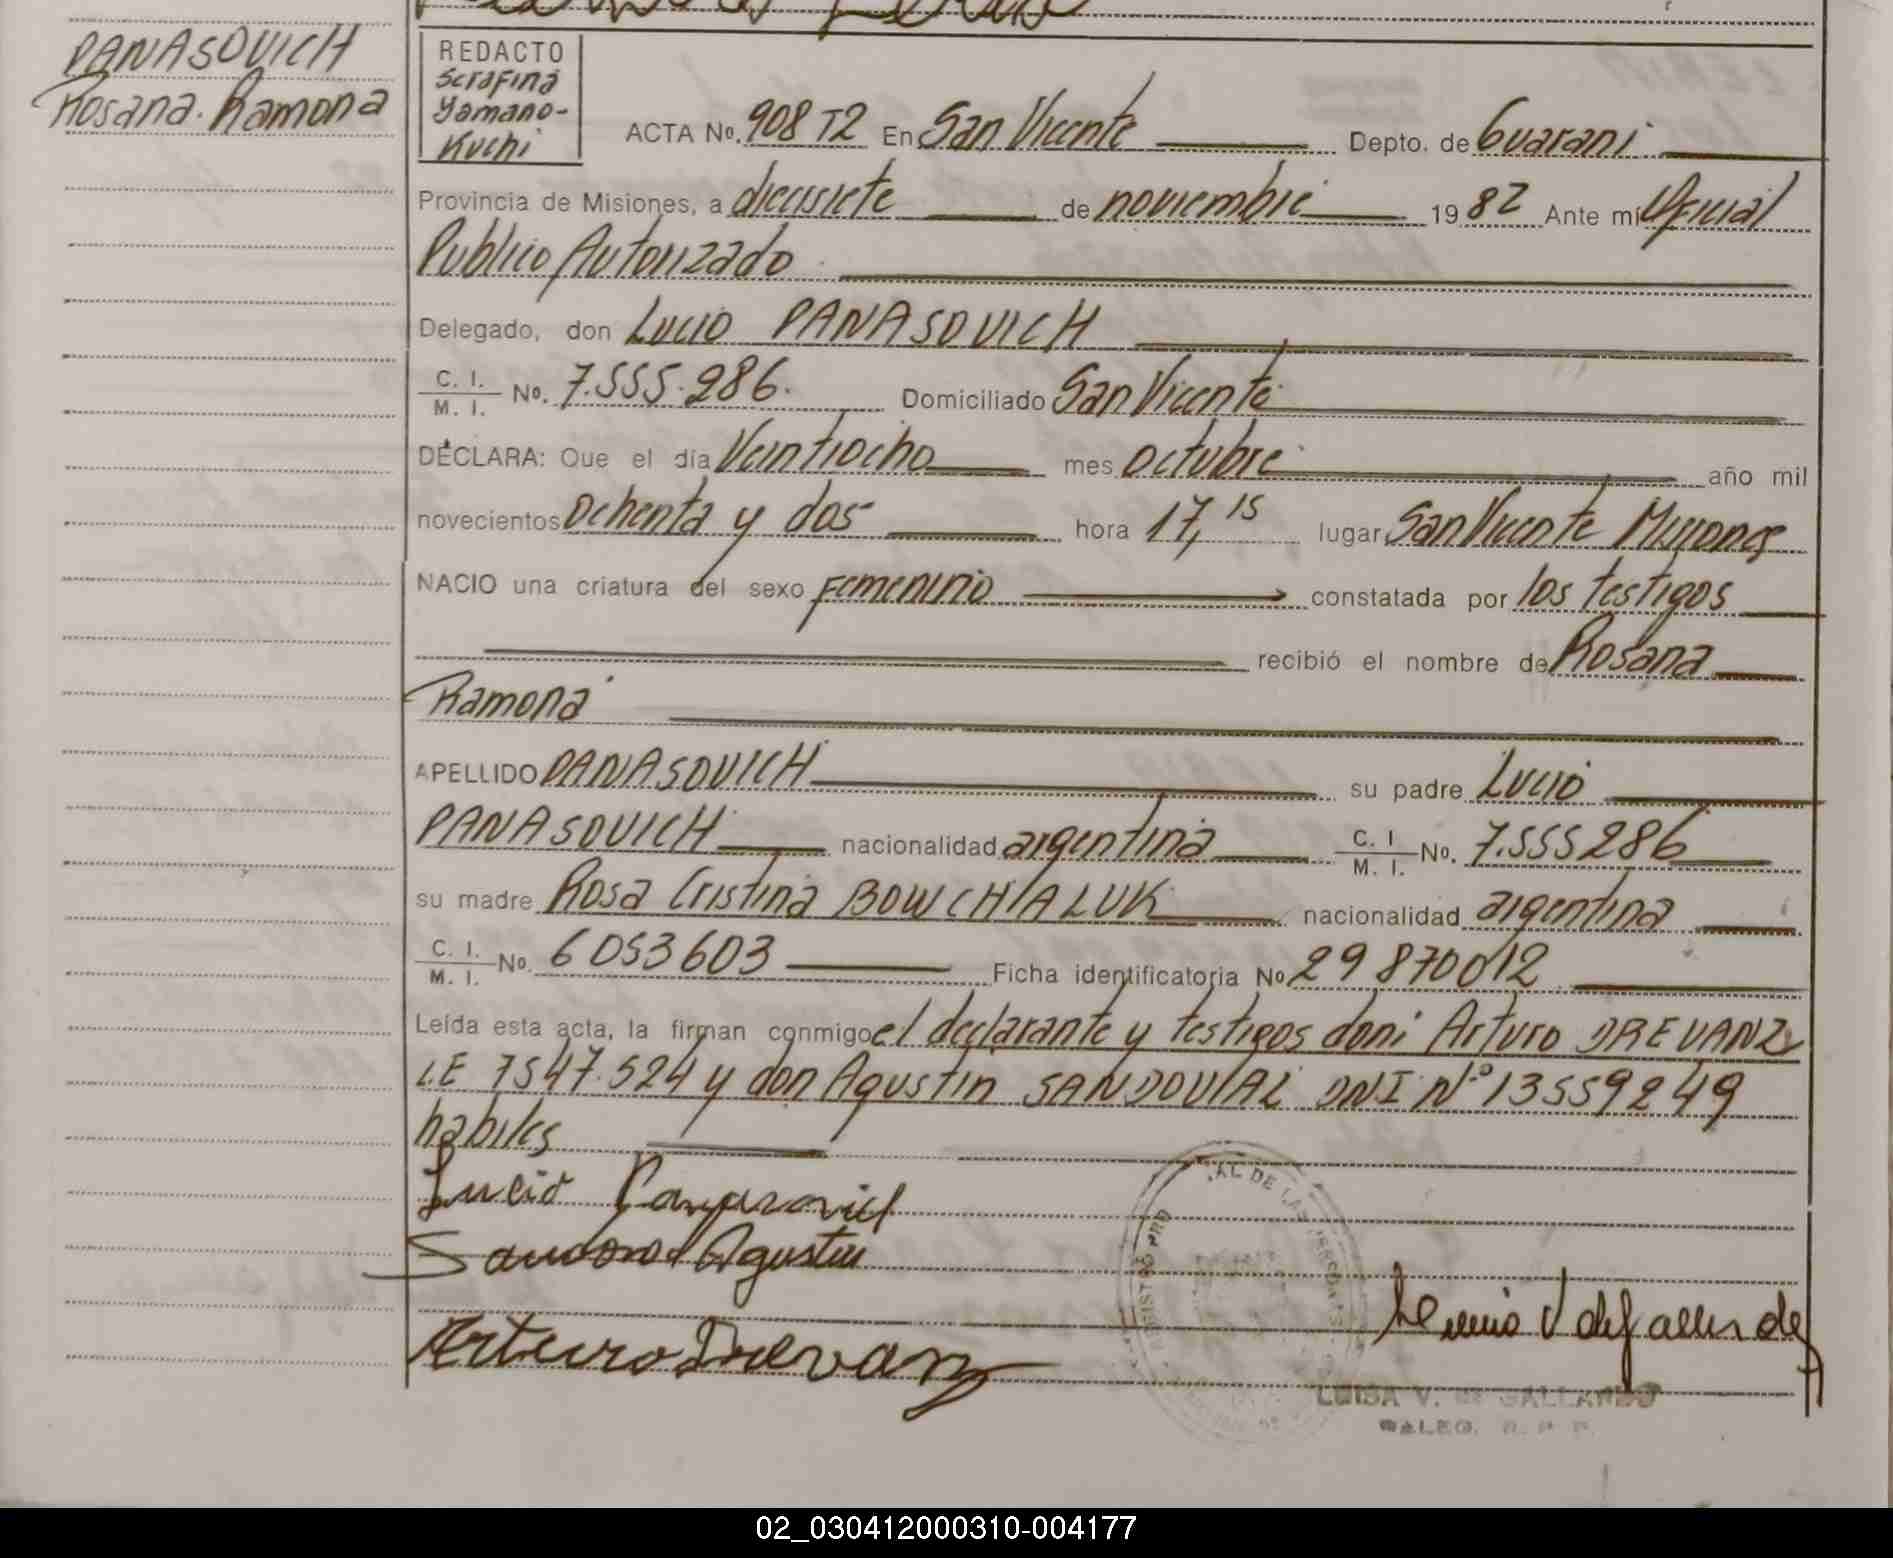 PANASOVICH
Rosana. Ramona
REDACTO
Serafina
Yamano-
Kuchi
ACTA No. 908 T2 En San Vicente Depto. de Guarani
Provincia de Misiones, a diecisiete de noviembre 1982 Ante mi Oficial
Publico Autorizado
Delegado, don Lucio PANASOVICH
C. I.
M. I. No. 7.555.286. Domiciliado San Vicente
DECLARA: Que el día Veintiocho mes octubre año mil
novecientos ochenta y dos hora 17,15 lugar San Vicente Misiones
NACIO una criatura del sexo Femenino constatada por los testigos
recibió el nombre de Rosana
Ramona
APELLIDO PANASOVICH su padre Lucio
PANASOVICH nacionalidad argentina C. I. M. I. No. 7.555286
su madre Rosa Cristina BOWCHALUK nacionalidad argentina
C. I.
M. I. No. 6053603 Ficha identificatoria No 29870012
Leída esta acta, la firman conmigo el declarante y testigos don: Arturo DREVANZ
L.E 7547.524 y don Agustin SANDOVAL DNI Nº 13559249
habiles
Lucio Panasovich
Sandoval Agustin
Arturo Drevanz
AL DE LAS PERSONAS
LUISA V. de GALLARDO
02_030412000310-004177